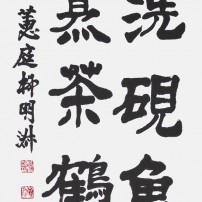 洗硯魚
煮茶鶴
蕙庭柳明洙